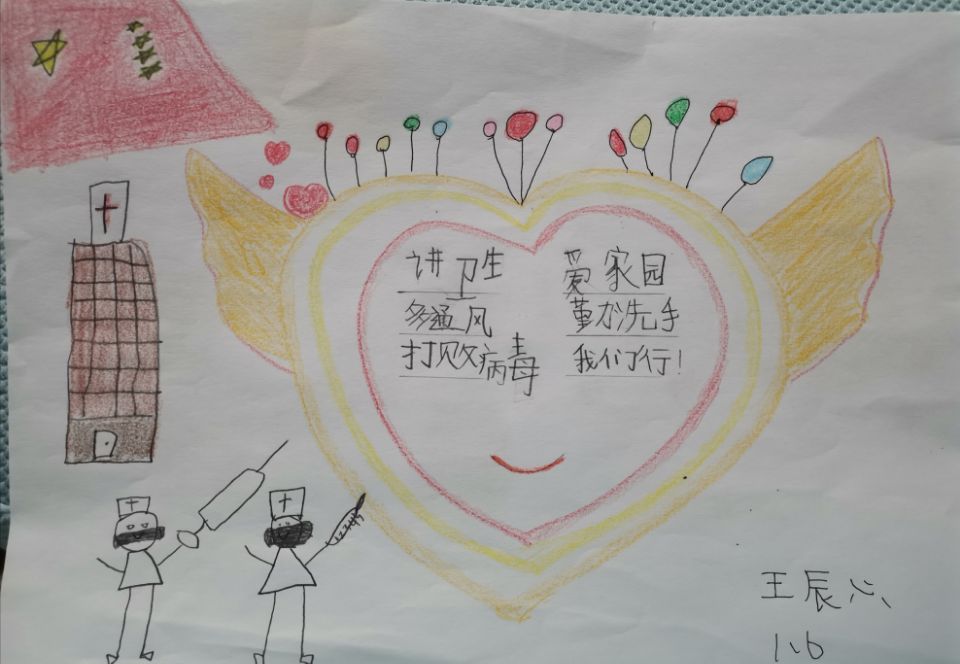 讲卫生 爱家园
多通风 勤洗手
打败病毒 我们行！
王辰心
1、6